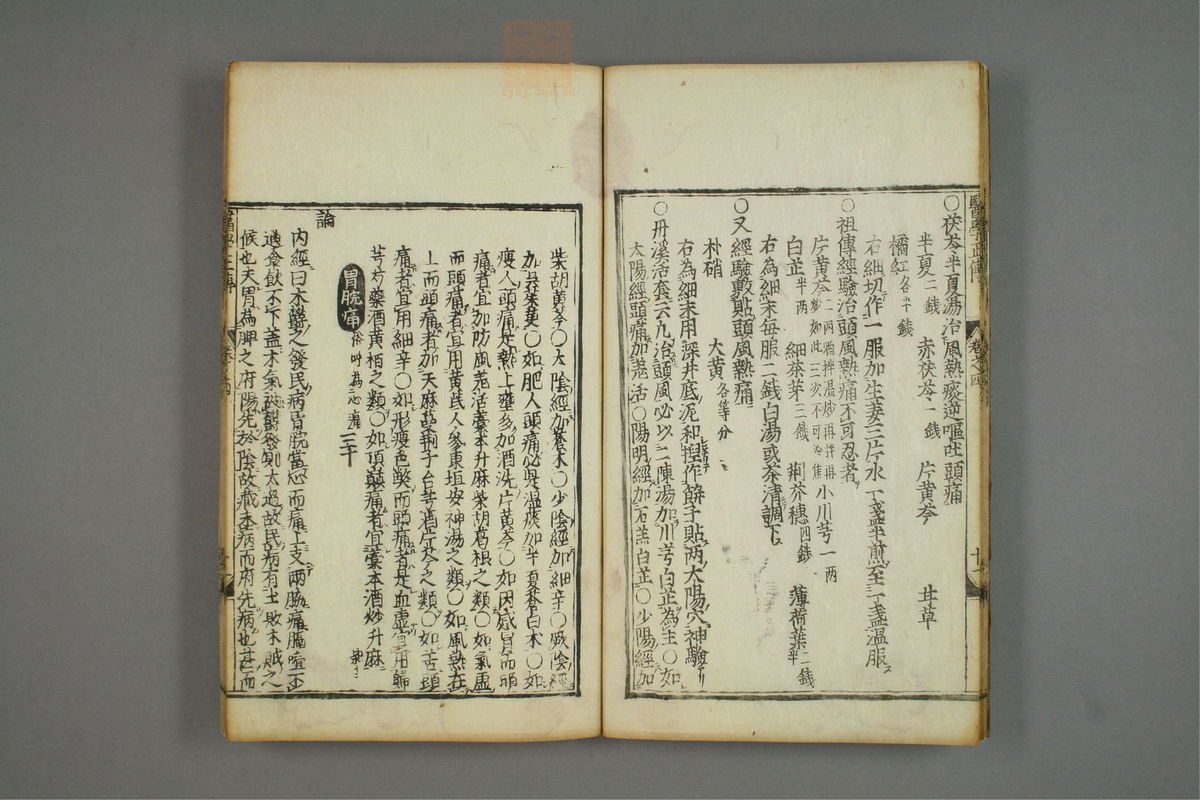 ○茯苓半夏湯治風熱痰逆嘔吐頭痛
半夏二錢 赤茯苓一錢 片黃芩 甘草
橘紅各半錢
右細切作一服加生姜三片水一盞半煎至一盞溫服
○祖傳經驗治頭風熱痛不可忍者
片黃芩一兩酒拌濕炒再拌再炒如此三次不可令焦 小川芎一兩
白芷半兩 細茶芽三錢 荆芥穗四錢 薄荷葉二錢半
右為細末每服二錢白湯或茶清調下
○又經驗敷貼頭風熱痛
朴硝 大黃各等分
右為細末用深井底泥和捏作餅子貼兩太陽穴神驗
○丹溪活套云凢治頭風必以二陳湯加川芎白芷為主○如
太陽經頭痛加羗活○陽明經加石羔白芷○少陽經加
醫學正傳 卷之四
柴胡黃芩○太陰經加蒼朮○少陰經加細辛○厥陰經
加吳茱萸○如肥人頭痛必是濕痰加半夏蒼白朮○如
瘦人頭痛是熱上壅多加酒洗片黃芩○如因感冒而頭
痛者宜加防風羗活藁本升麻柴胡葛根之類○如氣虛
而頭痛者宜用黃芪人參東垣安神湯之類○如風熱在
上而頭痛者加天麻蔓荆子台芎酒片芩之類○如苦頭
痛者宜用細辛○如形瘦色黑而頭痛者是血虛宜用歸
芎芍藥酒黃栢之類○如頂巔痛者宜藁本酒炒升麻柴胡
胃脘痛俗呼為心痛 二十
論
內經曰木鬱之發民病胃脘當心而痛上支兩脇痛膈咽不
通食飲不下盖木氣被鬱發則太過故民病有土敗木賊之
候也夫胃為脾之府陽先於陰故臟未病而府先病也甚而